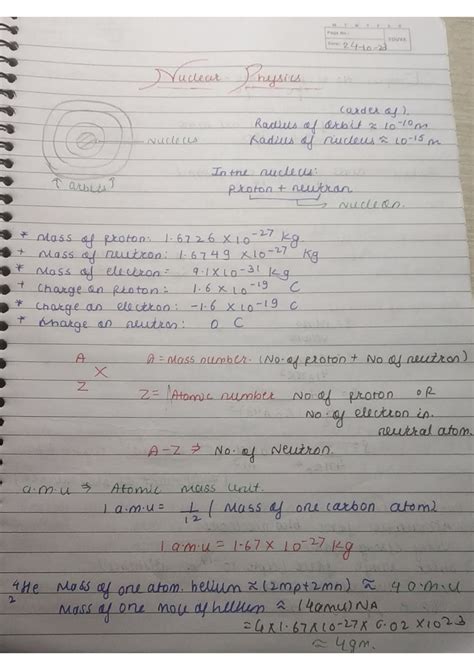 M T W T F S S
Page No.:
Date: 24-10-23
YOUVA
Nuclear Physics
(order of).
Radius of orbit ≈ 10^-10 m
Radius of nucleus ≈ 10^-15 m
Nucleus
orbits
In the nucleus:
proton + neutron
Nucleon.
* Mass of proton: 1.6726 × 10^-27 kg
+ Mass of neutron: 1.6749 × 10^-27 kg
* Mass of electron = 9.1 × 10^-31 kg
+ Charge on proton: 1.6 × 10^-19 C
* Charge on electron: -1.6 × 10^-19 C
* Charge on neutron: 0 C
A
X
Z
A = Mass number. (No. of proton + No of neutron)
Z = Atomic number No. of proton OR
No. of electron in
neutral atom.
A-Z ⇒ No. of Neutron.
a.m.u ⇒ Atomic Mass Unit.
1 a.m.u = 1/12 (Mass of one carbon atom)
1 a.m.u = 1.67 × 10^-27 kg
4 2 He Mass of one atom helium ≈ (2mp+2mn) ≈ 4 a.m.u
Mass of one mole of helium ≈ (4amu)NA
= 4 × 1.67 × 10^-27 × 6.02 × 10^23
≈ 4 gm.